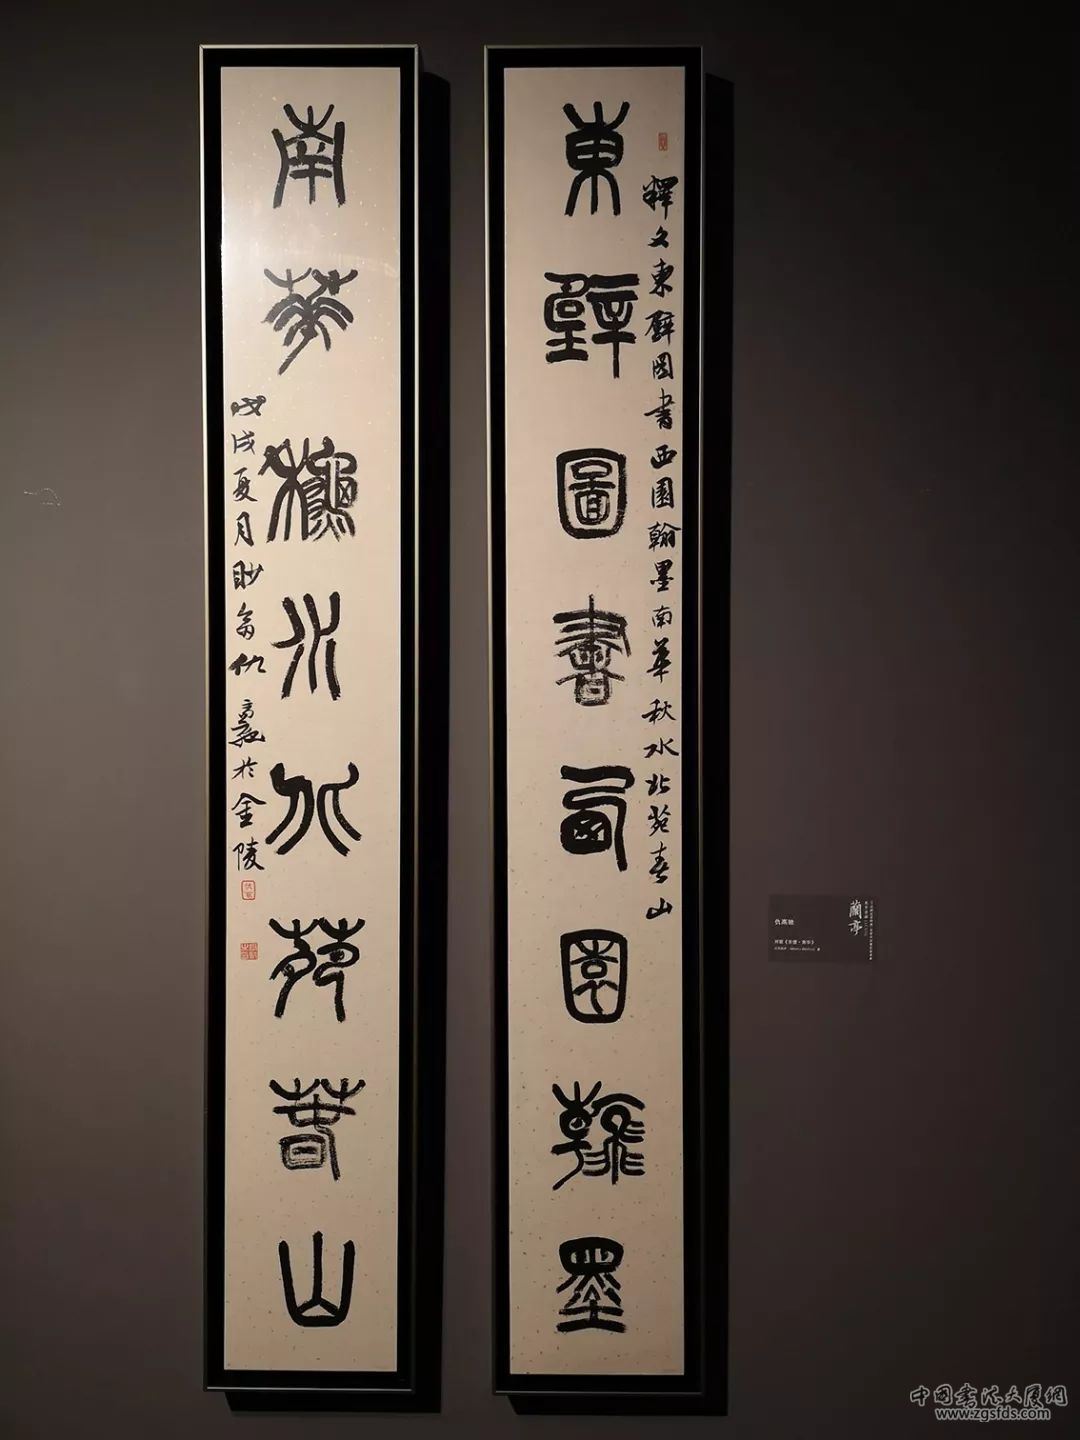 東壁圖書西園翰墨
釋文東壁图書西園翰墨南華秋水北苑春山
南華秋水北苑春山
戊戌夏月眇翁仇高驰於金陵
仇高驰
蘭亭
中国书法大厦網
www.zgsfds.com